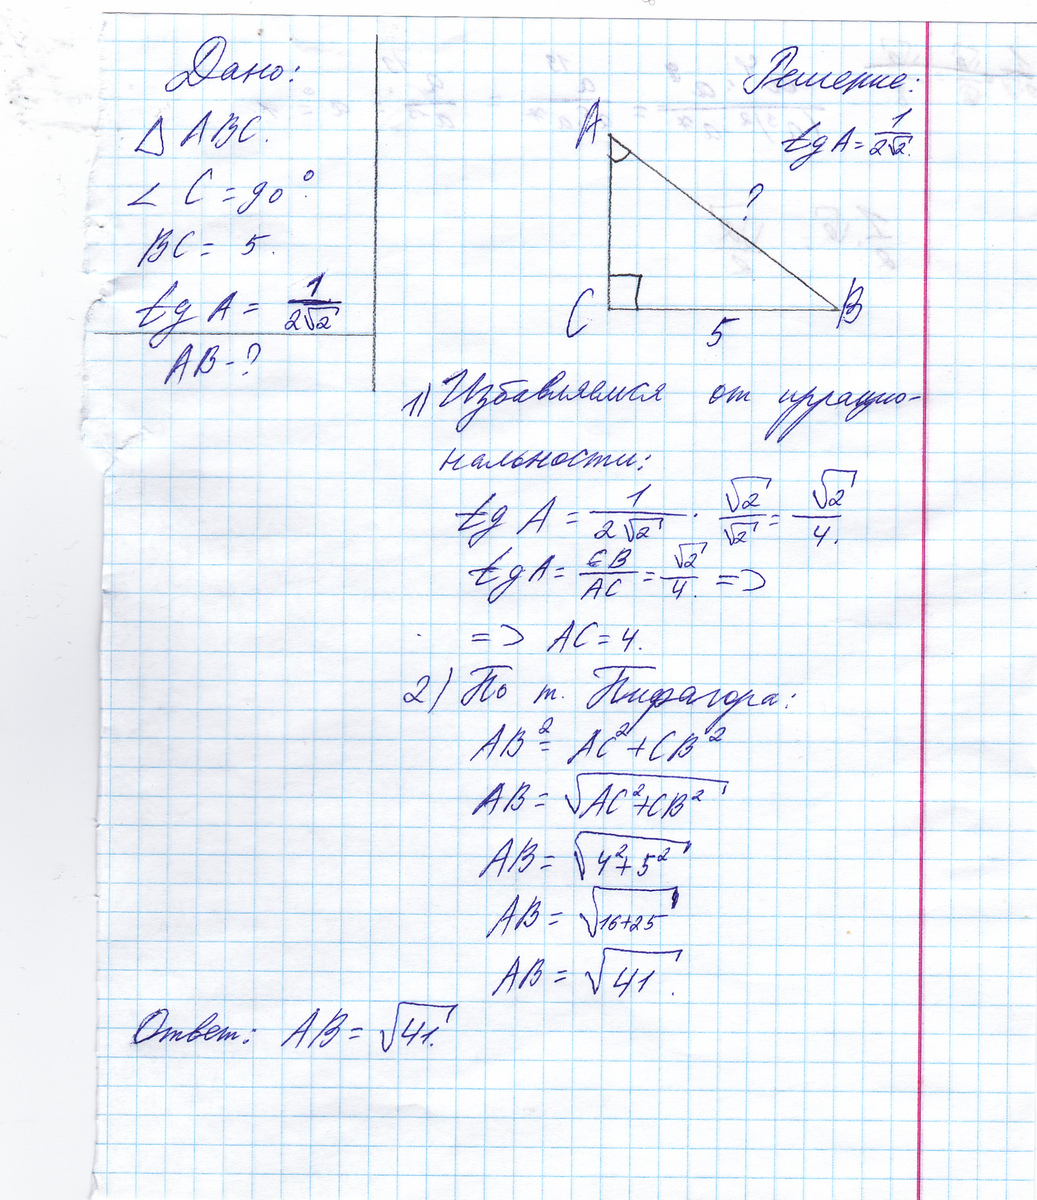 Дано:
△ ABC.
∠ C = 90°.
BC = 5.
tg A = 1/2√2
AB - ?
Решение:
tg A = 1/2√2.
A
?
C
5
B
1) Избавляемся от иррацио-
нальности:
tg A = 1/2√2 · √2/√2 = √2/4.
tg A = CB/AC = √2/4. =>
=> AC = 4.
2) По т. Пифагора:
AB² = AC² + CB²
AB = √AC² + CB²
AB = √4² + 5²
AB = √16+25
AB = √41.
Ответ: AB = √41.